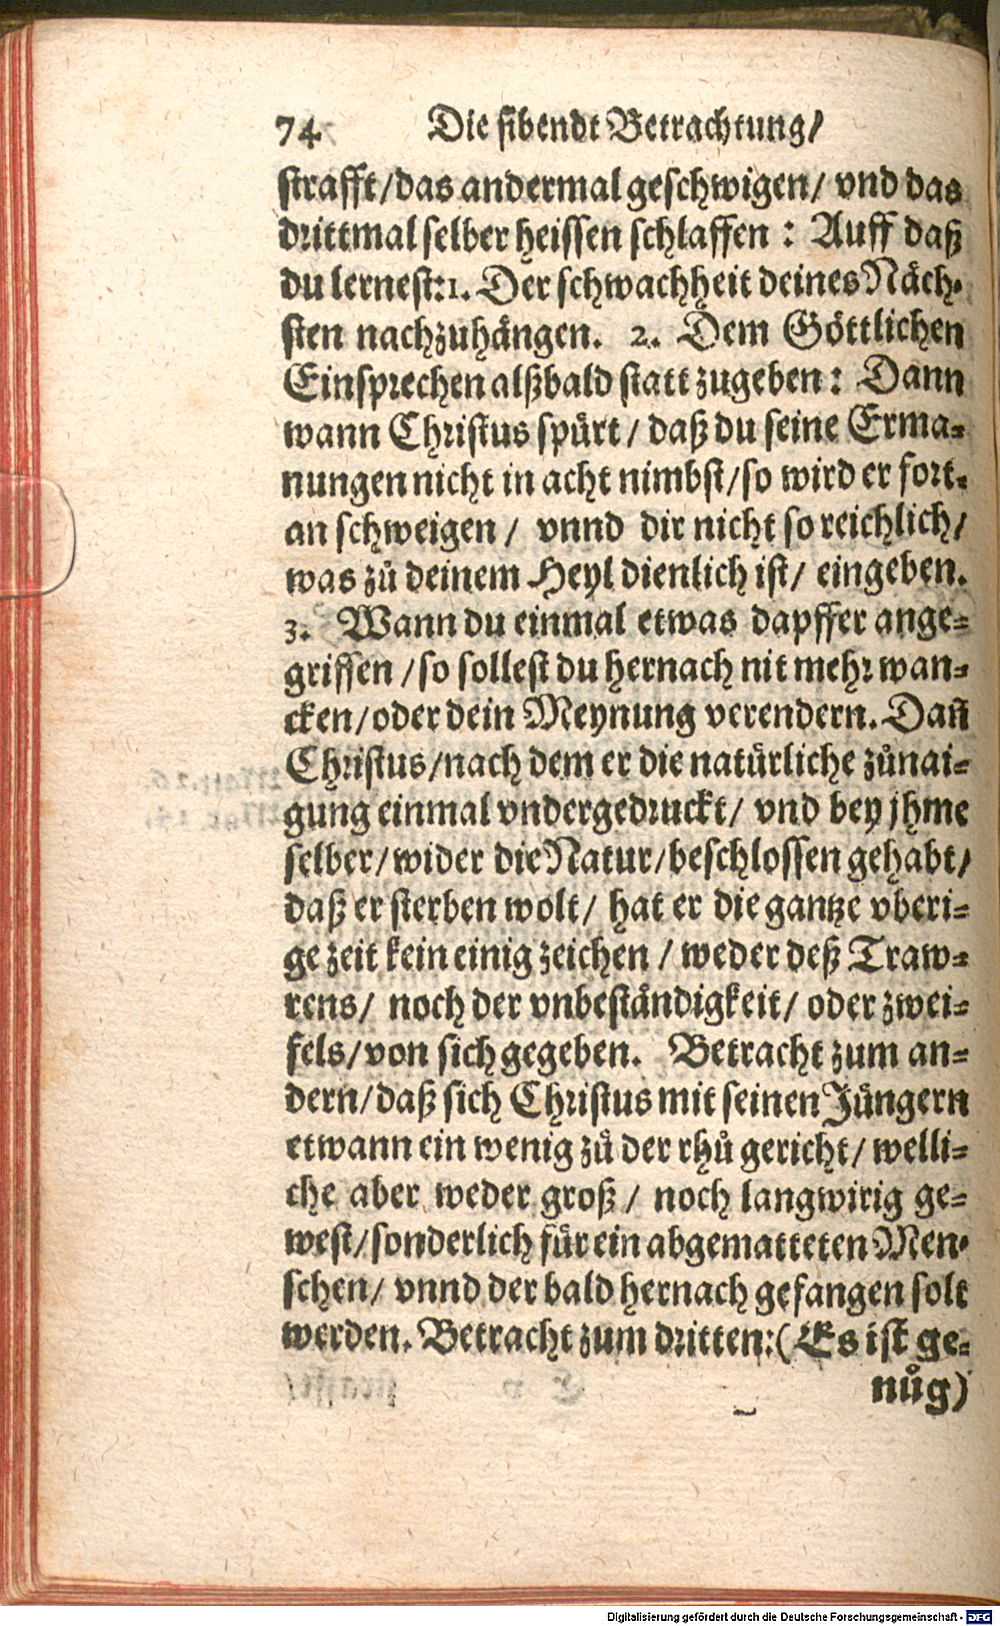 74 Die sibendt Betrachtung/
strafft/das andermal geschwigen/ vnd das
drittmal selber heissen schlaffen: Auff daß
du lernest:1. Der schwachheit deines Näch-
sten nachzuhängen. 2. Dem Göttlichen
Einsprechen alßbald statt zugeben: Dann
wann Christus spürt/ daß du seine Erma-
nungen nicht in acht nimbst/so wird er fort-
an schweigen/ vnnd dir nicht so reichlich/
was zů deinem Heyl dienlich ist/ eingeben.
3. Wann du einmal etwas dapffer ange-
griffen/so sollest du hernach nit mehr wan-
cken/oder dein Meynung verendern. Dañ
Christus/nach dem er die natürliche zůnai-
gung einmal vndergedruckt/ vnd bey jhme
selber/wider die Natur/beschlossen gehabt/
daß er sterben wolt/ hat er die gantze vberi-
ge zeit kein einig zeichen/ weder deß Traw-
rens/ noch der vnbeständigkeit/ oder zwei-
fels/von sich gegeben. Betracht zum an-
dern/daß sich Christus mit seinen Jüngern
etwann ein wenig zů der rhů gericht/ welli-
che aber weder groß/ noch langwirig ge-
west/sonderlich für ein abgematteten Men-
schen/ vnnd der bald hernach gefangen solt
werden. Betracht zum dritten:(Es ist ge-
nůg)
Digitalisierung gefördert durch die Deutsche Forschungsgemeinschaft - DFG